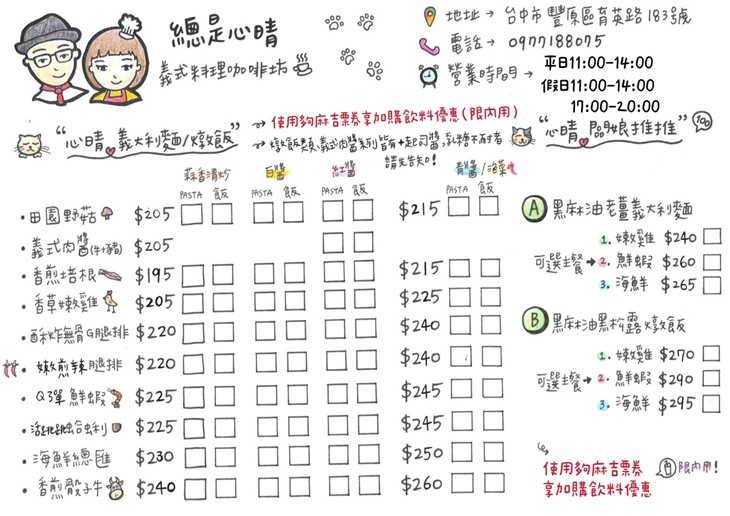 總是心晴
義式料理咖啡坊
地址→ 台中市豐原區育英路183號
電話→ 0977188075
營業時間→ 平日11:00-14:00
假日11:00-14:00
17:00-20:00
→使用夠麻吉票券享加購飲料優惠(限內用)
→燉飯類、義式肉醬系列皆有+起司醬,乳糖不耐者
請先告知!
"心晴 義大利麵/燉飯"
"心晴 闆娘推推"
蒜香清炒 白醬 紅醬 青醬/泡菜
PASTA 飯 PASTA 飯 PASTA 飯 PASTA 飯
•田園野菇 $205 $215
•義式肉醬(牛+豬) $205
•香煎培根 $195 $215
•香草嫩雞 $205 $225
•酥炸無骨G腿排 $220 $240
•嫩煎辣腿排 $220 $240
•Q彈鮮蝦 $225 $245
•活跳跳蛤蜊 $225 $245
•海鮮總匯 $230 $250
•香煎骰子牛 $240 $260
A 黑麻油老薑義大利麵
可選主餐→
1. 嫩雞 $240
2. 鮮蝦 $260
3. 海鮮 $265
B 黑麻油黑松露燉飯
可選主餐→
1. 嫩雞 $270
2. 鮮蝦 $290
3. 海鮮 $295
使用夠麻吉票券
享加購飲料優惠
限內用!